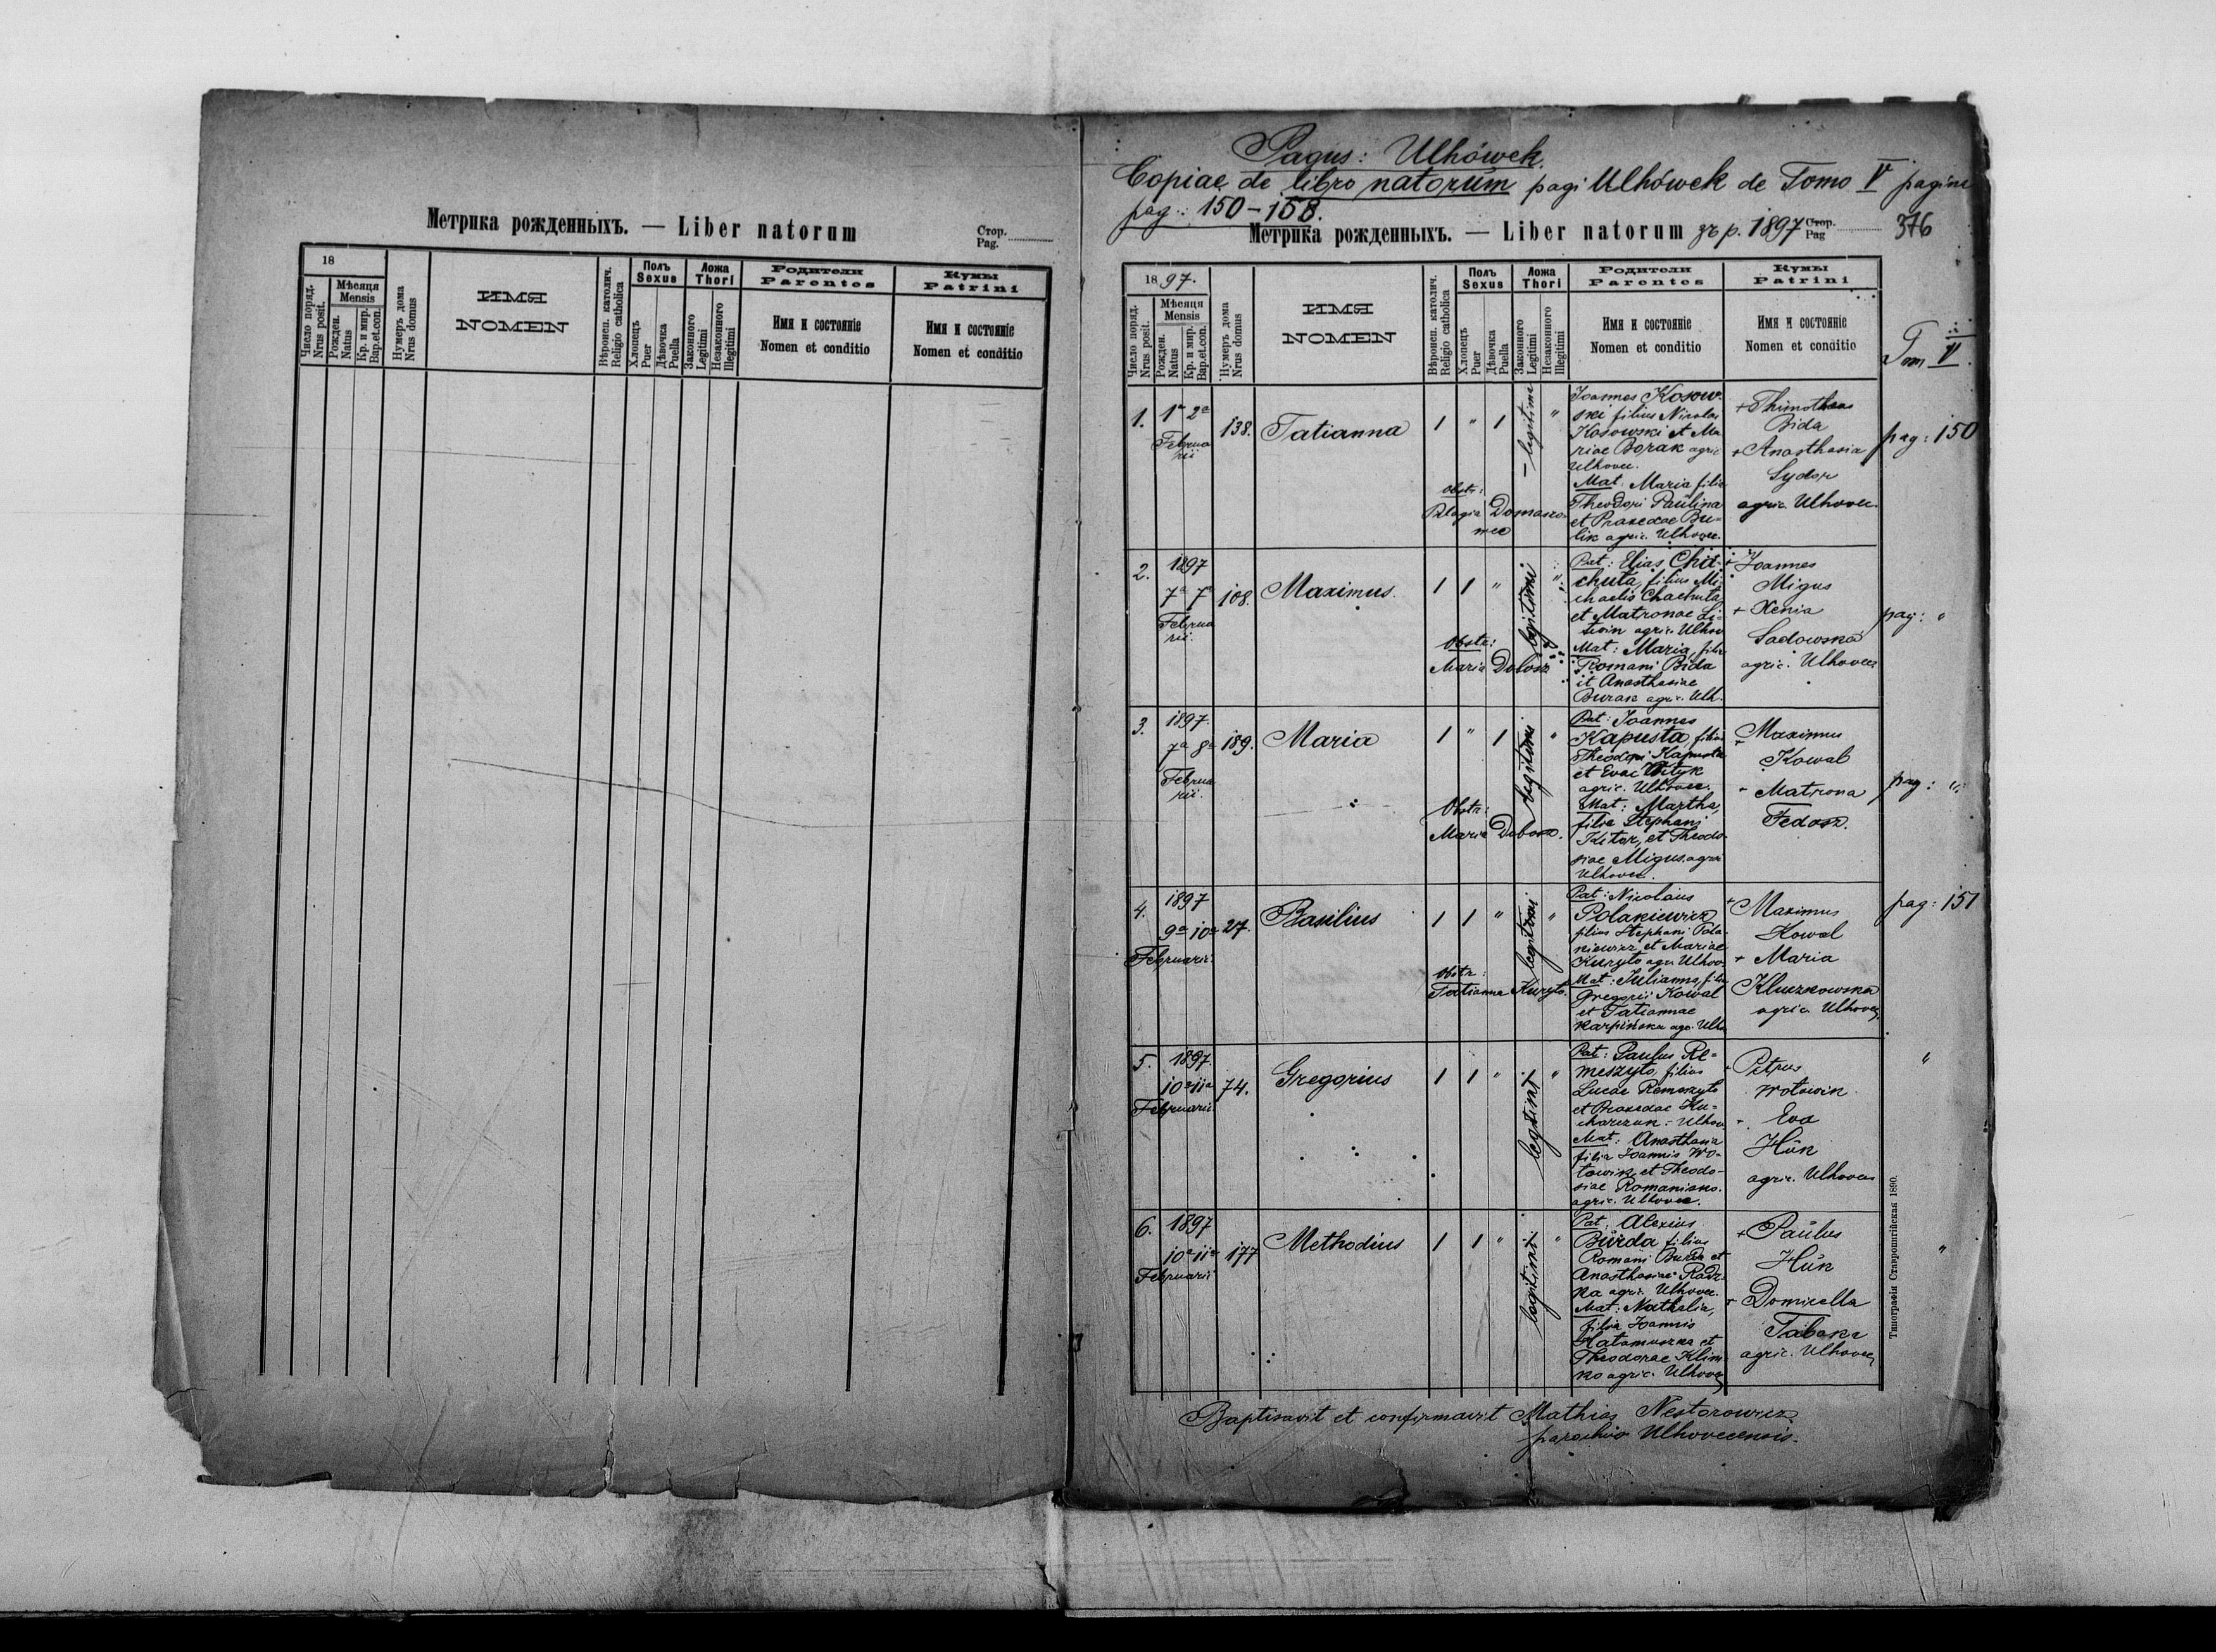 Метрика рожденныхъ. — Liber natorum
Стор.
Pag.
18
Число поряд.
Nrus posit.
Мѣсяця
Mensis
Рожден.
Natus
Кр. и мир.
Bap.et.con.
Нумеръ дома
Nrus domus
ИМЯ
NOMEN
Вѣроисп. католич.
Religio catholica
Полъ
Sexus
Хлопецъ
Puer
Дѣвочка
Puella
Ложа
Thori
Законного
Legitimi
Незаконного
Illegitimi
Родители
Parentes
Имя и состояніе
Nomen et conditio
Кумы
Patrini
Имя и состояніе
Nomen et conditio
Pagus: Ulhówek.
Copiae de libro natorum pagi Ulhówek de Tomo V pagina
pag.: 150-158.
Метрика рожденныхъ. — Liber natorum зъ р. 1897
Стор.
Pag
376
1897.
Число поряд.
Nrus posit.
Мѣсяця
Mensis
Рожден.
Natus
Кр. и мир.
Bap.et.con.
Нумеръ дома
Nrus domus
ИМЯ
NOMEN
Вѣроисп. католич.
Religio catholica
Полъ
Sexus
Хлопецъ
Puer
Дѣвочка
Puella
Ложа
Thori
Законного
Legitimi
Незаконного
Illegitimi
Родители
Parentes
Имя и состояніе
Nomen et conditio
Кумы
Patrini
Имя и состояніе
Nomen et conditio
Tom V.
1. 1a 2a
Februa
rii
138. Tatianna 1 " 1 legitimi "
Obstr:
Pelagia
Joannes Kosow-
ski filius Nicolai
Kosowski et Ma
riae Borak agric
Ulhovec.
Mat: Maria filia
Theodori Paulina
et Praxedae Bu-
lik agric. Ulhovec.
+ Thimotheus
Bida
+ Anasthasia
Sydor
agric. Ulhovec.
pag: 150
2. 1897
7a 7a
Februa
rii.
108. Maximus. 1 1 " legitimi "
Obstr:
Maria
Pat: Elias
filius Mi-
chaelis
et Matronae Li-
twin agric. Ulhov
Mat: Maria, filia
Romani Bida
et Anasthasiae
Burak agric. Ulh.
+ Joannes
Migus
+ Xenia
Sadowska
agric. Ulhovec
pag: "
3. 1897.
7a 8a
Februa
rii.
189. Maria 1 " 1 legitimi "
Obstr:
Maria
Pat: Joannes
Kapusta, filius
Theodori Kapusta
et Evae
agric. Ulhovec.
Mat: Martha,
filia Stephani
et Theodo-
siae Migus agric
Ulhovec.
+ Maximus
Kowal
+ Matrona
Fedosz.
pag: "
4. 1897
9a 10a
Februarii.
27. Basilius 1 1 " legitimi "
Obstr:
Tatianna Kuryto.
Pat: Nicolaus
Polakiewicz
filius Stephani Pola
kiewicz et Mariae
Kuryto agr. Ulhov.
Mat: Julianna, filia
Gregorii Kowal
et Tatiannae
Karpińska agr. Ulho
+ Maximus
Kowal
+ Maria
Kluczkowska
agric. Ulhovec
pag: 151
5. 1897.
10a 11a
Februarii.
74. Gregorius 1 1 " legitimi "
Pat: Paulus Re-
meszyto, filius
Lucae Remeszyto
et Praxedae Ku-
Ulhov.
Mat: Anasthasia
filia Joannis Wo-
towik, et Theodo-
siae
agric. Ulhovec.
+ Petrus
Wotowik
+ Eva
Huk
agric. Ulhovec
"
6. 1897
10a 11a
Februarii
177 Methodius 1 1 " legitimi "
Pat: Alexius
Burda filius
Romani Burda et
Anasthasiae Radz-
ka agric. Ulhovec.
Mat: Nathalia,
filia Joannis
et
Theodorae Klim-
ko agric. Ulhovec
+ Paulus
Huk
+ Domicella
Tabaka
agric. Ulhovec
"
Типографія Ставропигійская 1890.
Baptisavit et confirmavit Mathias Nestorowicz
parochus Ulhovecensis.